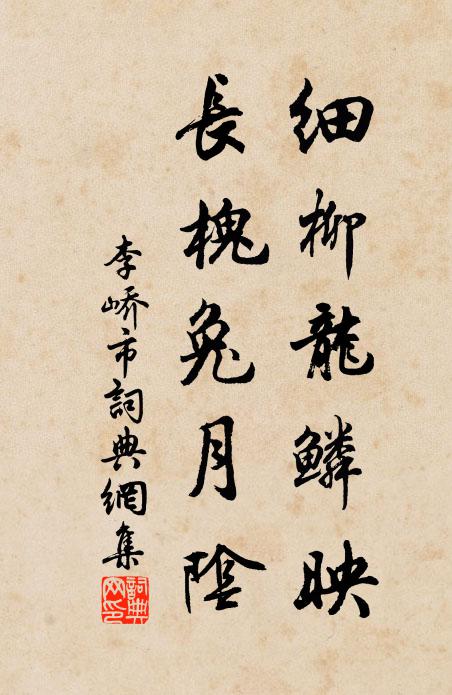 細柳龍鱗映
長槐兔月陰
李嶠市詞典網集
詞典
网印